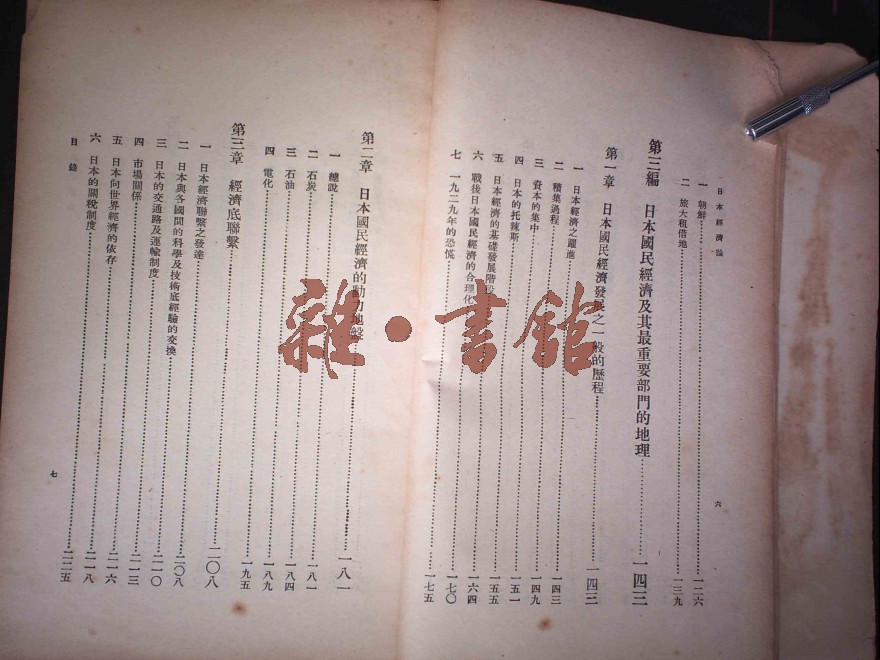 日本經濟論
一 朝鮮……一二六
二 旅大租借地……一三九
第三編 日本國民經濟及其最重要部門的地理……一四三
第一章 日本國民經濟發展之一般的歷程……一四三
一 日本經濟之躍進……一四三
二 積集過程……一四三
三 資本的集中……一四九
四 日本的托辣斯……一五一
五 日本經濟的基礎發展階段……一五五
六 戰後日本國民經濟的合理化……一六四
七 一九二九年的恐慌……一七〇
一七五
六
第二章 日本國民經濟的動力地盤……一八一
一 總說……
二 石炭……一八一
三 石油……一八四
四 電化……一八九
一九五
第三章 經濟底聯繫……二〇八
一 日本經濟聯繫之發達……
二 日本與各國間的科學及技術底經驗的交換……二〇八
三 日本的交通路及運輸制度……二一〇
四 市場關係……二一三
五 日本向世界經濟的依存……二一六
六 日本的關稅制度……二一八
目錄
二二五
七
雜·書館